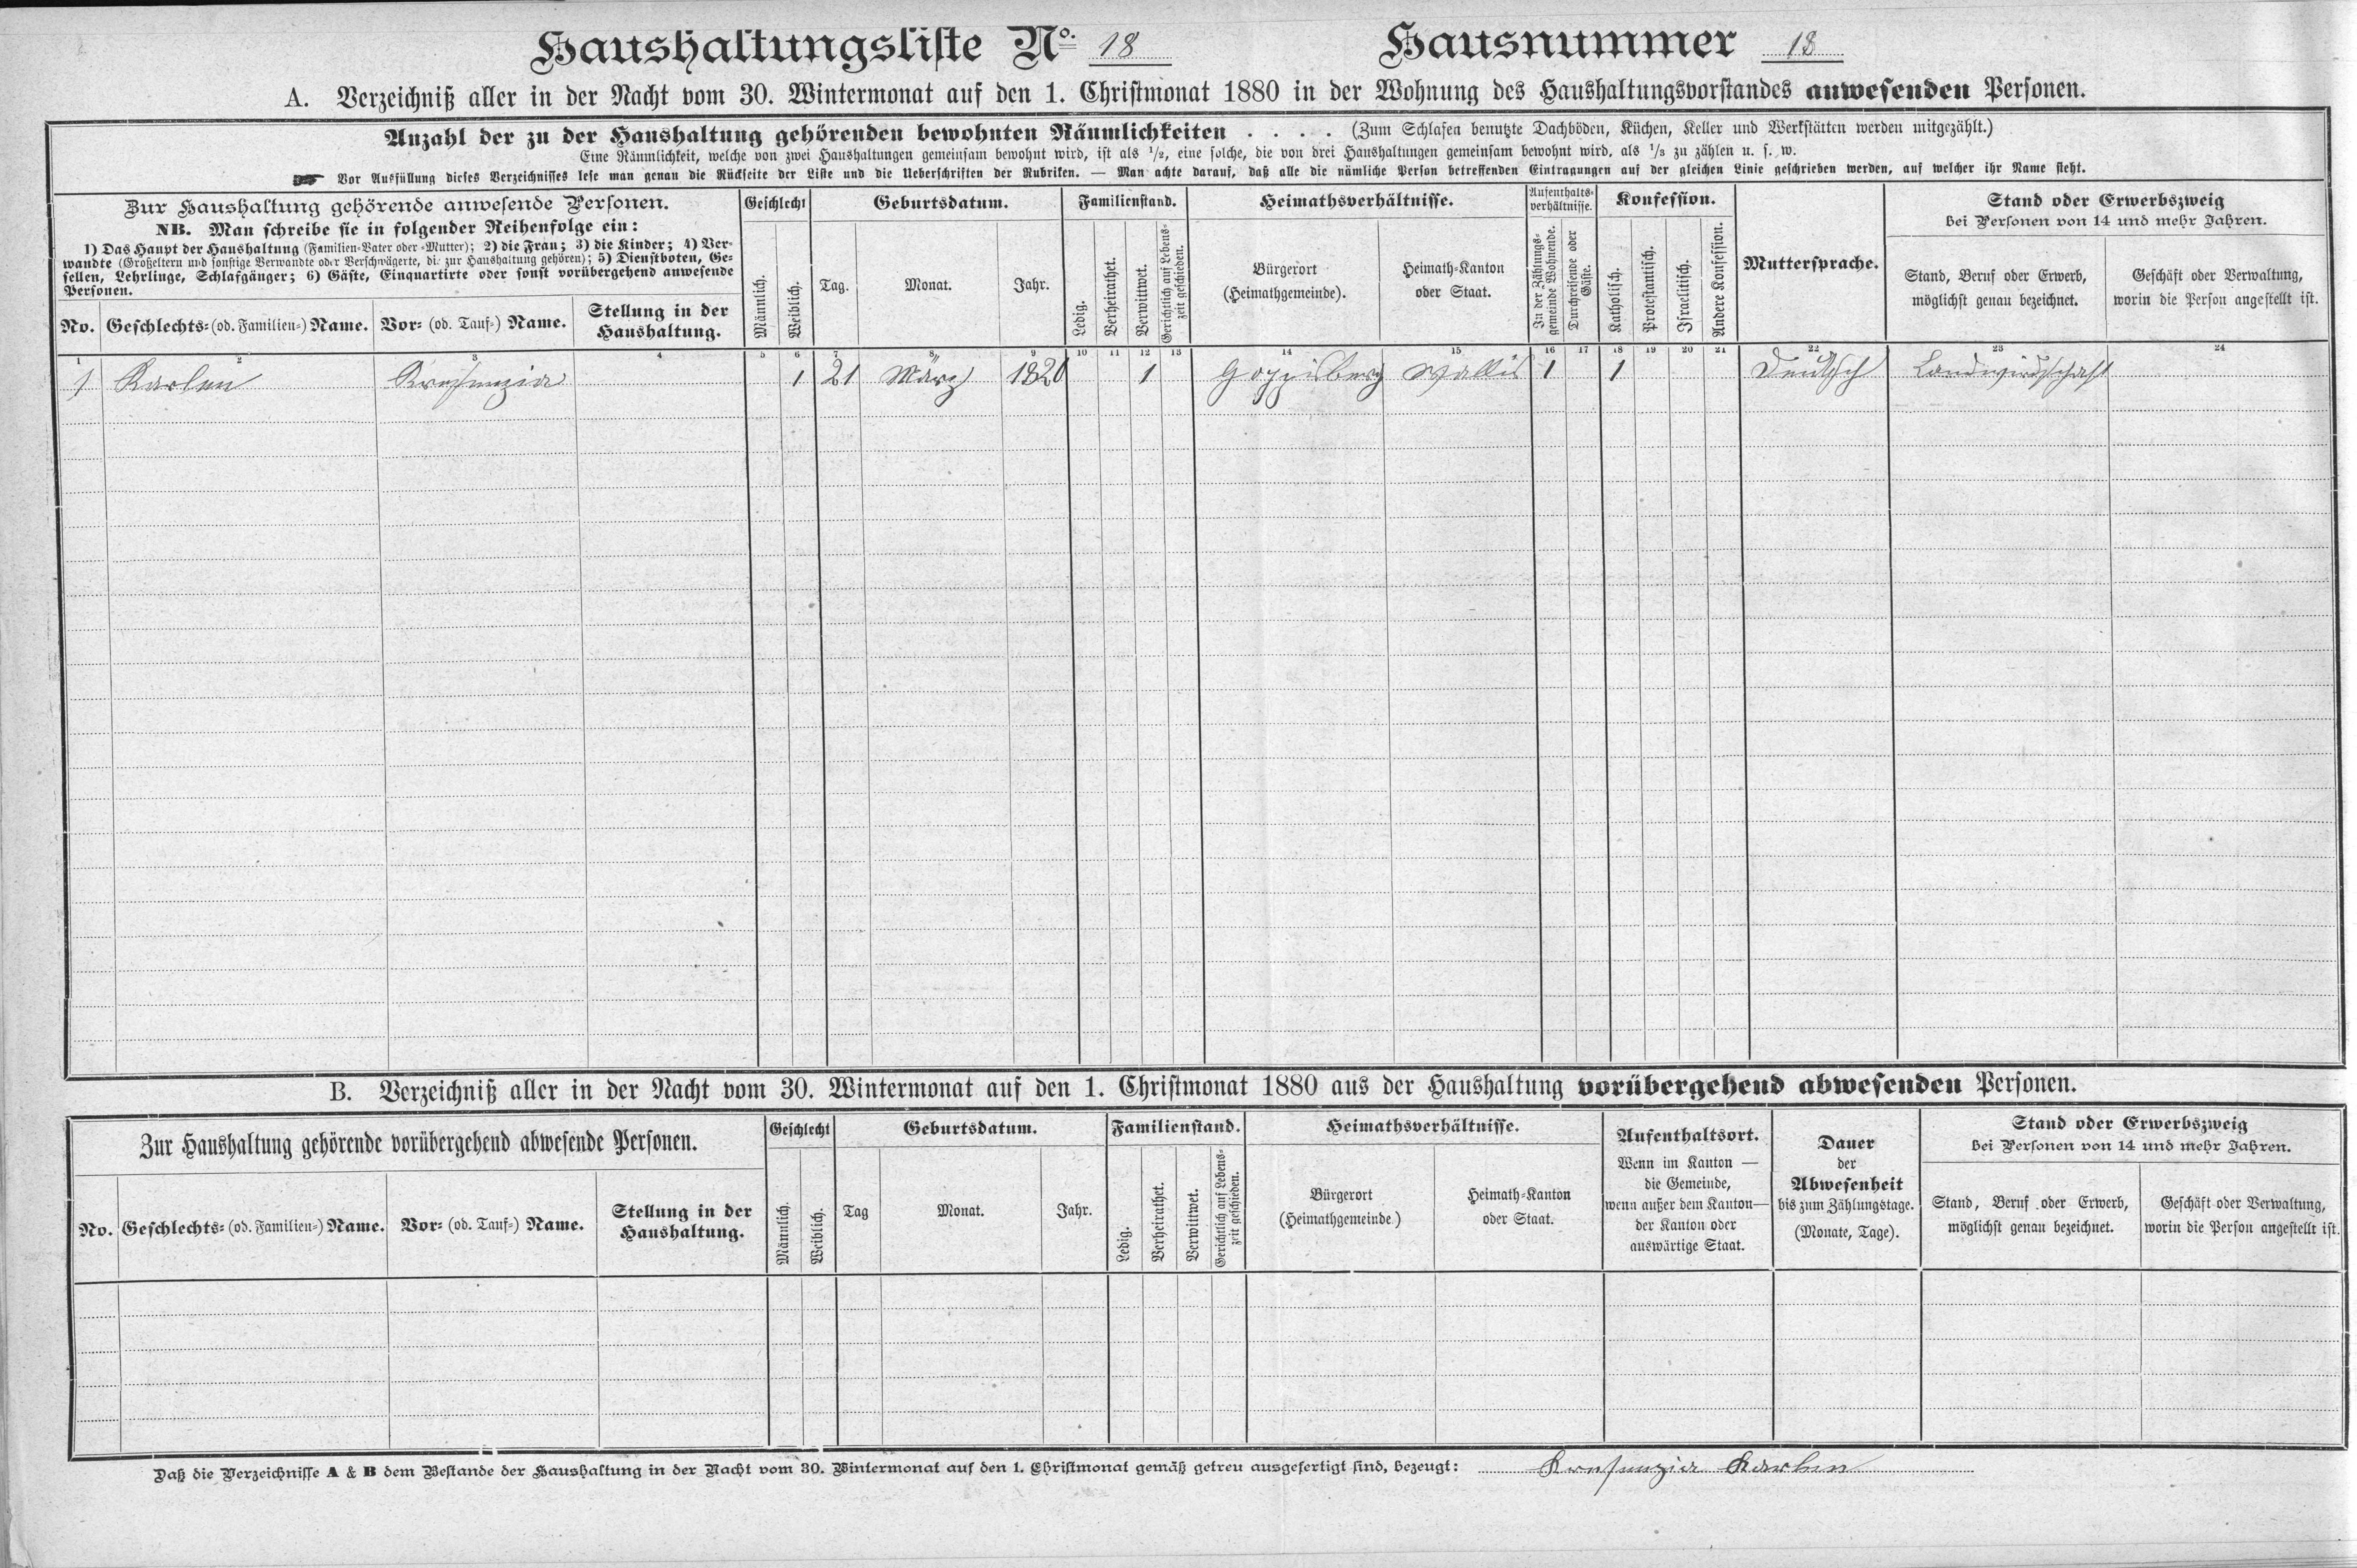 Haushaltungsliste No. 18 Hausnummer 18
A. Verzeichniß aller in der Nacht vom 30. Wintermonat auf den 1. Christmonat 1880 in der Wohnung des Haushaltungsvorstandes anwesenden Personen.
Anzahl der zu der Haushaltung gehörenden bewohnten Räumlichkeiten . . . . (Zum Schlafen benutzte Dachböden, Küchen, Keller und Werkstätten werden mitgezählt.)
Eine Räumlichkeit, welche von zwei Haushaltungen gemeinsam bewohnt wird, ist als 1/2, eine solche, die von drei Haushaltungen gemeinsam bewohnt wird, als 1/3 zu zählen u. s. w.
Vor Ausfüllung dieses Verzeichnisses lese man genau die Rückseite der Liste und die Ueberschriften der Rubriken. — Man achte darauf, daß alle die nämliche Person betreffenden Eintragungen auf der gleichen Linie geschrieben werden, auf welcher ihr Name steht.
Zur Haushaltung gehörende anwesende Personen.
NB. Man schreibe sie in folgender Reihenfolge ein:
1) Das Haupt der Haushaltung (Familien-Vater oder -Mutter); 2) die Frau; 3) die Kinder; 4) Ver-
wandte (Großeltern und sonstige Verwandte oder Verschwägerte, die zur Haushaltung gehören); 5) Dienstboten, Ge-
sellen, Lehrlinge, Schlafgänger; 6) Gäste, Einquartirte oder sonst vorübergehend anwesende
Personen.
No. Geschlechts- (od. Familien-) Name. Vor- (od. Tauf-) Name. Stellung in der
Haushaltung.
Geschlecht
Männlich.
Weiblich.
Geburtsdatum.
Tag. Monat. Jahr.
Familienstand.
Ledig.
Verheirathet.
Verwittwet.
Gerichtlich auf Lebens-
zeit geschieden.
Heimathsverhältnisse.
Bürgerort
(Heimathgemeinde).
Heimath-Kanton
oder Staat.
Aufenthalts-
verhältnisse.
In der Zählungs-
gemeinde Wohnende.
Durchreisende oder
Gäste.
Konfession.
Katholisch.
Protestantisch.
Israelitisch.
Andere Konfession.
Muttersprache.
Stand oder Erwerbszweig
bei Personen von 14 und mehr Jahren.
Stand, Beruf oder Erwerb,
möglichst genau bezeichnet.
Geschäft oder Verwaltung,
worin die Person angestellt ist.
1 2 3 4 5 6 7 8 9 10 11 12 13 14 15 16 17 18 19 20 21 22 23 24
1 Karlen Kresenzia 1 21 März 1820 1 Goppisberg Wallis 1 1 Deutsch Landwirdschaft
B. Verzeichniß aller in der Nacht vom 30. Wintermonat auf den 1. Christmonat 1880 aus der Haushaltung vorübergehend abwesenden Personen.
Zur Haushaltung gehörende vorübergehend abwesende Personen.
No. Geschlechts- (od. Familien-) Name. Vor- (od. Tauf-) Name. Stellung in der
Haushaltung.
Geschlecht
Männlich.
Weiblich.
Geburtsdatum.
Tag Monat. Jahr.
Familienstand.
Ledig.
Verheirathet.
Verwittwet.
Gerichtlich auf Lebens-
zeit geschieden.
Heimathsverhältnisse.
Bürgerort
(Heimathgemeinde)
Heimath-Kanton
oder Staat.
Aufenthaltsort.
Wenn im Kanton —
die Gemeinde,
wenn außer dem Kanton—
der Kanton oder
auswärtige Staat.
Dauer
der
Abwesenheit
bis zum Zählungstage.
(Monate, Tage).
Stand oder Erwerbszweig
bei Personen von 14 und mehr Jahren.
Stand, Beruf oder Erwerb,
möglichst genau bezeichnet.
Geschäft oder Verwaltung,
worin die Person angestellt ist.
Daß die Verzeichnisse A & B dem Bestande der Haushaltung in der Nacht vom 30. Wintermonat auf den 1. Christmonat gemäß getreu ausgefertigt sind, bezeugt: Kresenzia Karlen